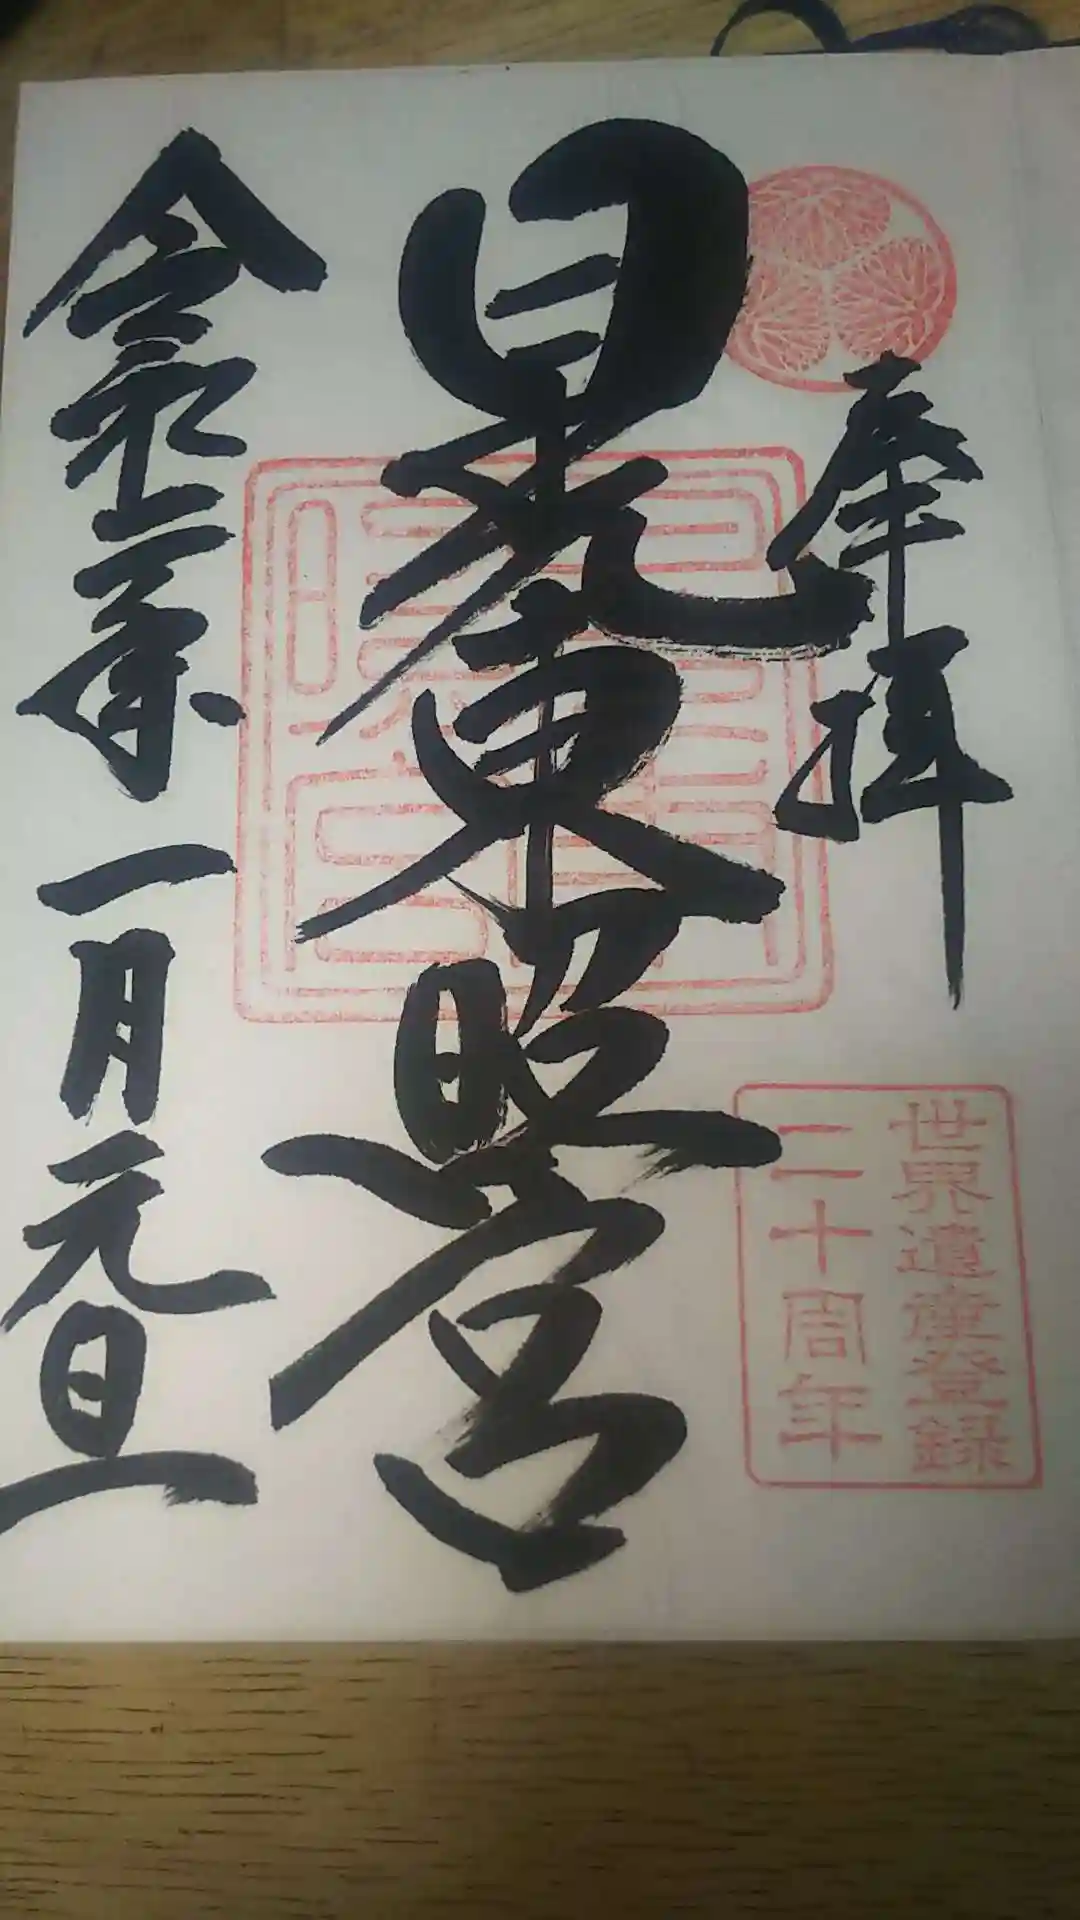 奉拝
世界遺産登録
二十周年
日光東照宮
令和二年一月元旦